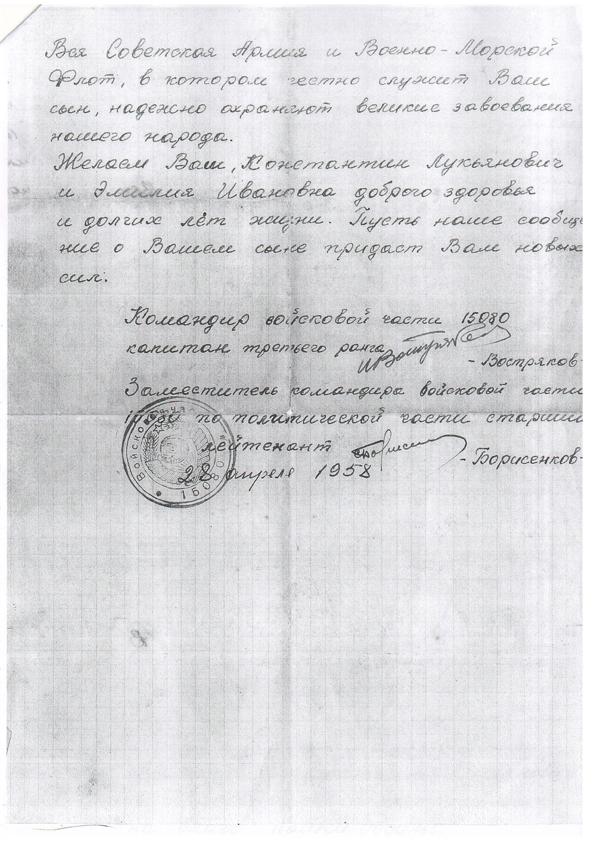 Вся Советская Армия и Военно-Морской
Флот, в котором честно служит Ваш
сын, надежно охраняют великие завоевания
нашего народа.
Желаем Вам, Константин Лукьянович
и Эмилия Ивановна доброго здоровья
и долгих лет жизни. Пусть наше сообще
ние о Вашем сыне придаст Вам новых
сил.
Командир войсковой части 15080
капитан третьего ранга
- Востряков-
Заместитель командира войсковой части
по политической части старший
лейтенант
- Борисенков-
28 апреля 1958
Войсковая
15080